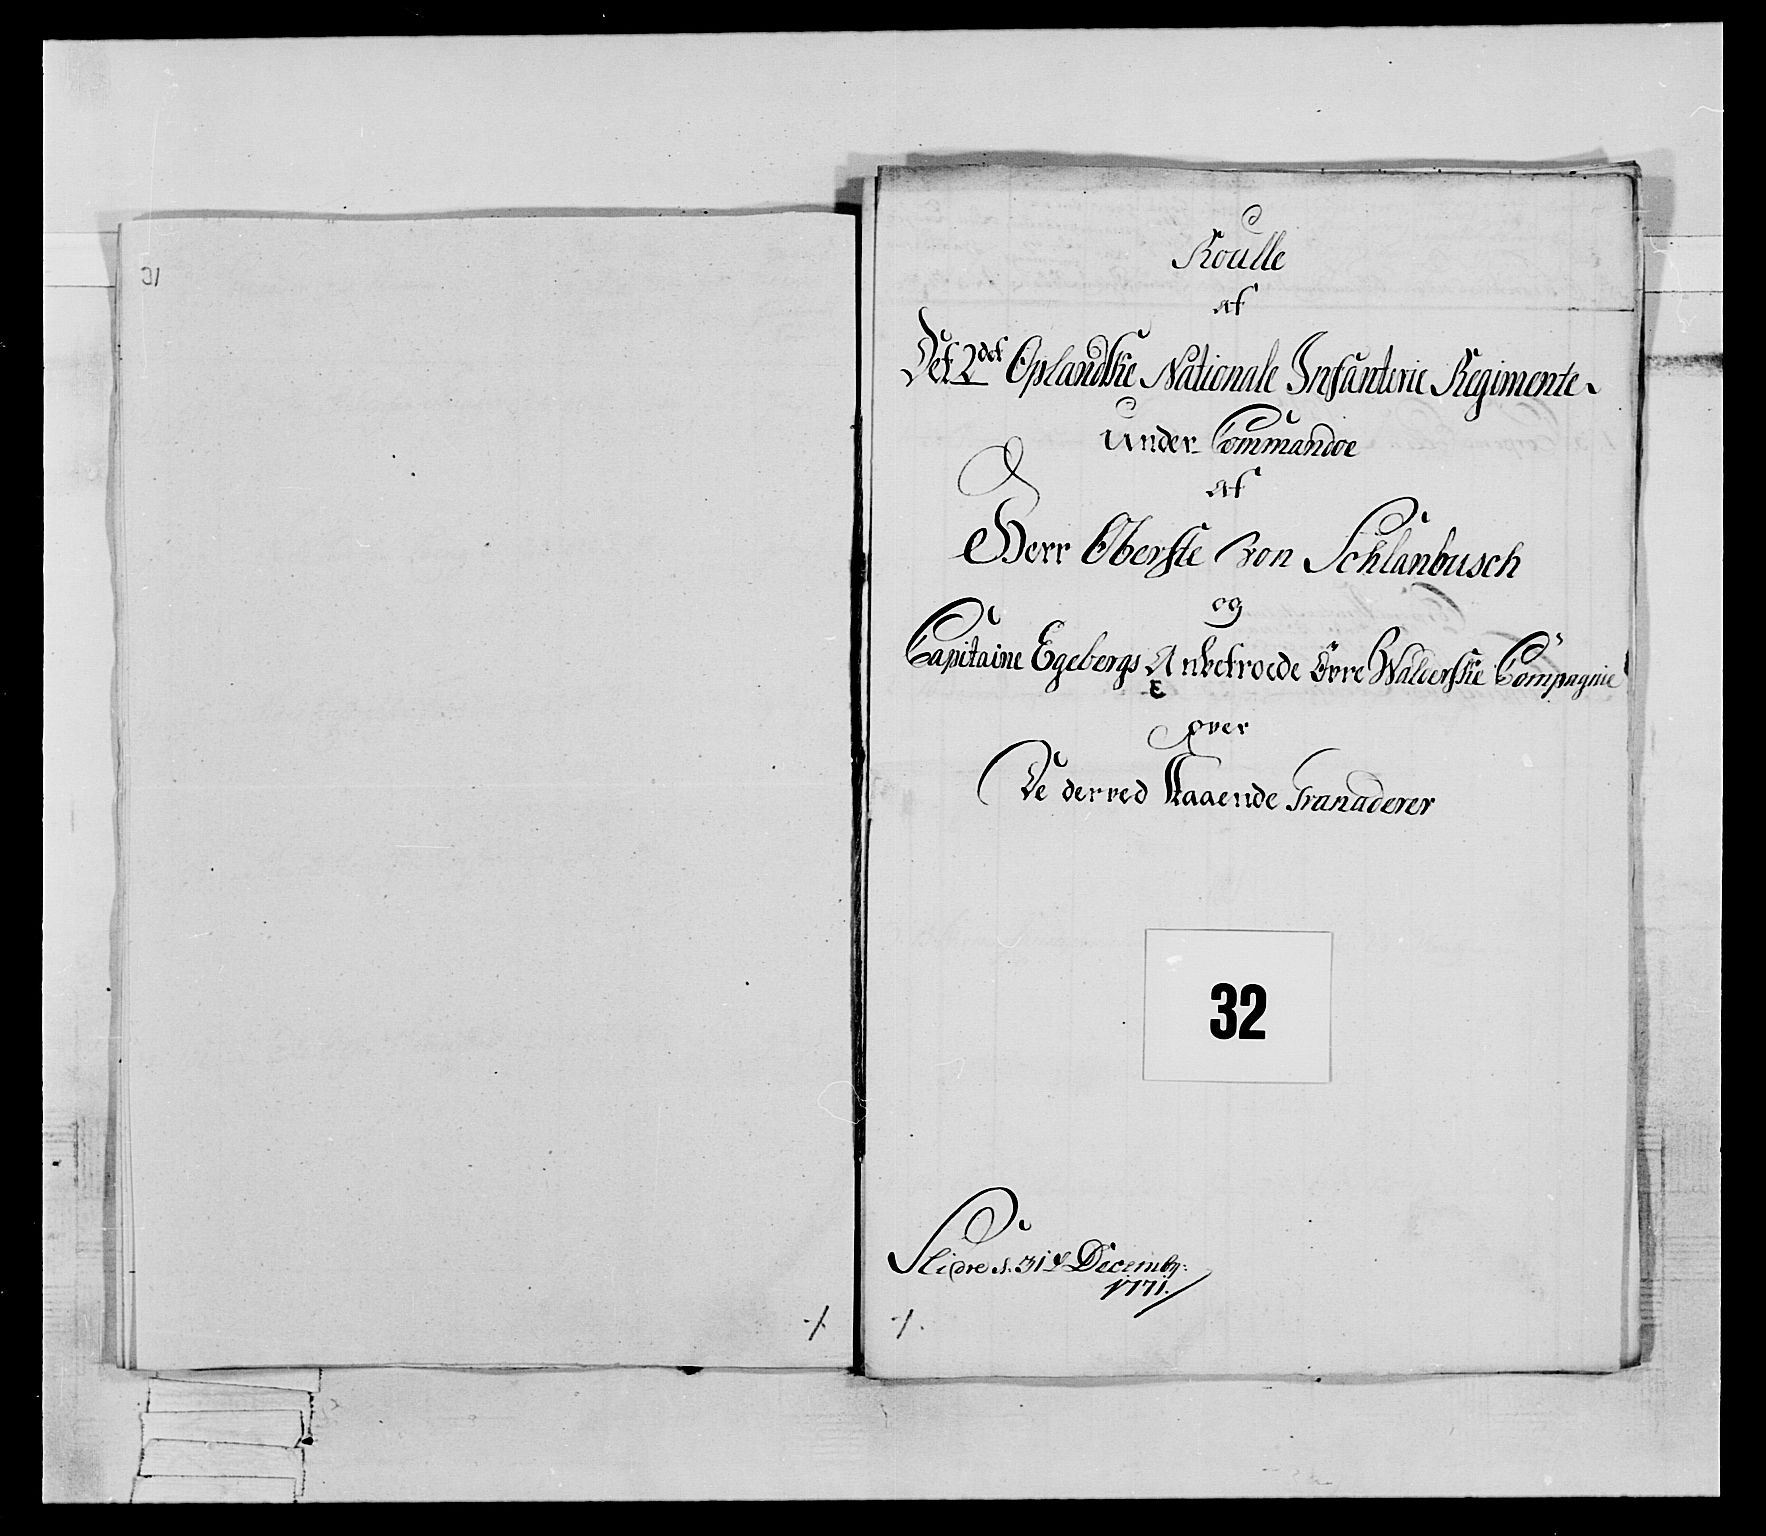 31
Roulle
af
Det 2det Oplandske Nationale Infanterie Regimente
under Commandoe
af
Herr Oberste von Schlanbusch
og
Capitaine Egebergs Anbetroede Övre Walderske Compagnie
E
over
De derved Staaende Granaderer
32
Slidre d. 31t Decembr:
1771.